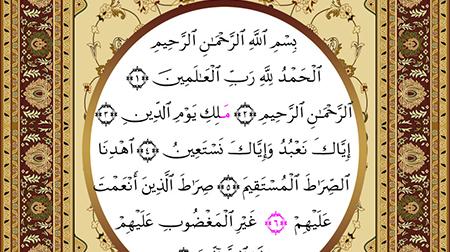 بِسْمِ اللَّهِ الرَّحْمَٰنِ الرَّحِيمِ
الْحَمْدُ لِلَّهِ رَبِّ الْعَٰلَمِينَ ﴿١﴾
الرَّحْمَٰنِ الرَّحِيمِ ﴿٢﴾ مَلِكِ يَوْمِ الدِّينِ ﴿٣﴾
إِيَّاكَ نَعْبُدُ وَإِيَّاكَ نَسْتَعِينُ ﴿٤﴾ اهْدِنَا
الصِّرَٰطَ الْمُسْتَقِيمَ ﴿٥﴾ صِرَٰطَ الَّذِينَ أَنْعَمْتَ
عَلَيْهِمْ ﴿٦﴾ غَيْرِ الْمَغْضُوبِ عَلَيْهِمْ